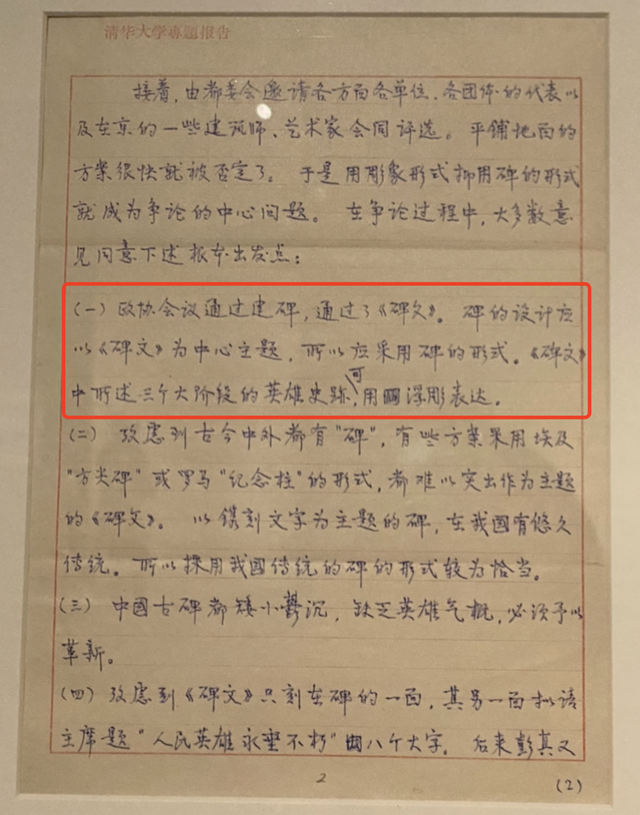 清华大学专题报告
接着,由都委会邀请各方面各单位、各团体的代表以
及在京的一些建筑师、艺术家会同评选。平铺地面的
方案很快就被否定了。于是用彫象形式抑用碑的形式
就成为争论的中心问题。在争论过程中,大多数意
见同意下述根本出发点:
(一)政协会议通过建碑,通过了《碑文》。碑的设计应
以《碑文》为中心主题,所以应采用碑的形式。《碑文》
中所述三个大阶段的英雄史跡,可用浮彫表达。
(二)考虑到古今中外都有"碑",有些方案采用埃及
"方尖碑"或罗马"纪念柱"的形式,都难以突出作为主题
的《碑文》。以镌刻文字为主题的碑,在我國有悠久
传统。所以採用我國传统的碑的形式较为恰当。
(三)中國古碑都矮小鬱沉,缺乏英雄气概,必须予以
革新。
(四)考虑到《碑文》只刻在碑的一面,其另一面拟请
主席题"人民英雄永垂不朽"八个大字。后来彭真又
2
(2)